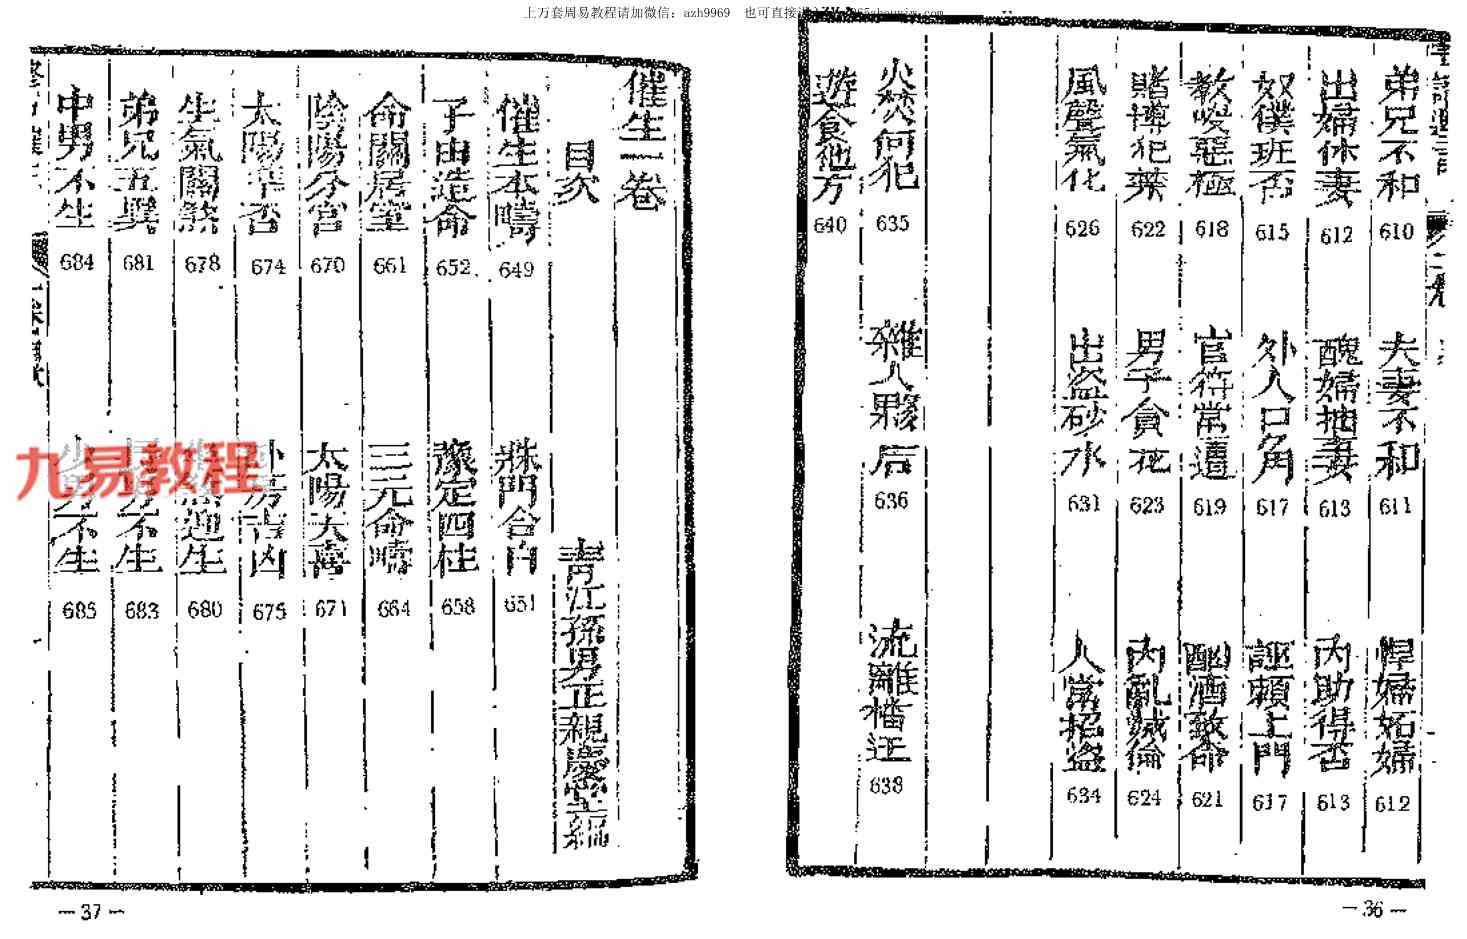 上万套周易教程请加微信：azh9969 也可直接
弟兄不和 610 夫妻不和 611 悍婦妬婦 612
出婦休妻 612 醜婦抽妻 613 内助得否 613
奴僕班否 615 外人口角 617 誣頼上門 617
教唆惡極 618 官符常遭 619 酗酒致命 621
賭博犯葉 622 男子貪花 623 内亂滅倫 624
風聲氣化 626 出盗砂水 631 人常招盜 634
火焚何犯 635 雜人夥居 636 流離播迁 638
遊食他方 640
— 36 —
催生一卷
目次
青江孫男正親慶堂編
催生本疇 649 牀門合白 651
子由造命 652 豫定四柱 658
命關居室 661 三元命疇 664
陰陽分宫 670 太陽大喜 671
太陽是否 674 卦房吉凶 675
生氣關煞 678 迎生 680
弟兄五異 681 男不生 683
中男不生 684 少男不生 685
— 37 —
九易教程